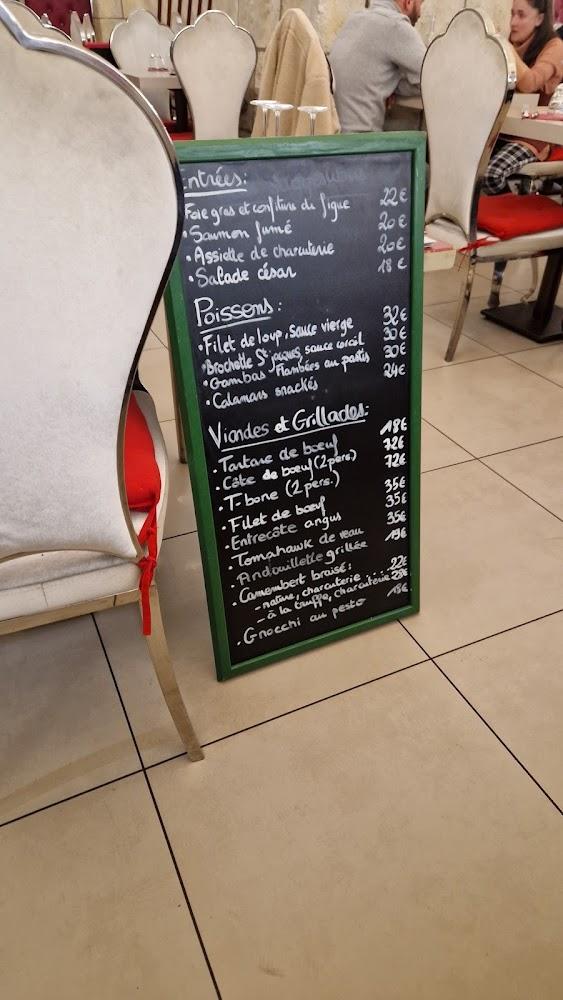 Entrées:
Foie gras et confiture de figue 22€
• Saumon fumé 20€
• Assiette de charcuterie 20€
• Salade césar 18€
Poissons:
• Filet de loup, sauce vierge 32€
• Brochette St jacques, sauce corail 30€
• Gambas flambées au pastis 30€
• Calamars snackés 24€
Viandes et Grillades:
• Tartare de bœuf 18€
• Côte de bœuf (2 pers.) 72€
• T-bone (2 pers.) 72€
• Filet de bœuf 35€
• Entrecôte angus 35€
• Tomahawk de veau 35€
• Andouillette grillée 19€
• Camembert braisé:
- nature, charcuterie .... 22€
- à la truffe, charcuterie 28€
• Gnocchi au pesto 18€